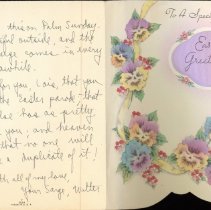 this on Palm Sunday.
outside, and the
comes in every
awhile.
you, Lois, that you
the Easter parade - that
else has as pretty
you, and heaven
that no one will
a duplicate of it!
all of my love,
Your Sarge, Walter
To A Special
Easter